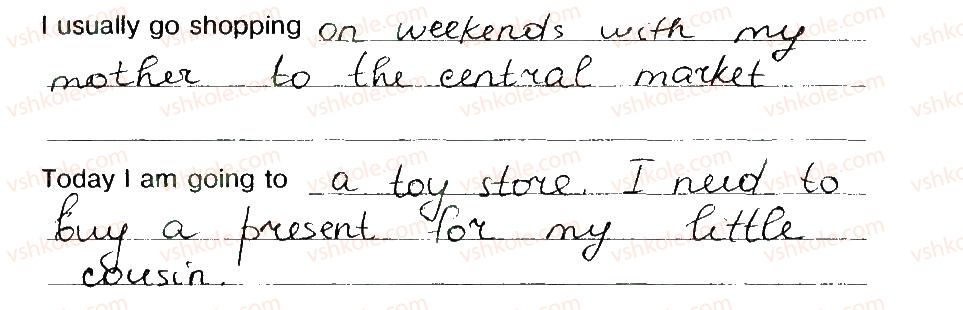 I usually go shopping on weekends with my
mother to the central market
Today I am going to a toy store. I need to
buy a present for my little
cousin.